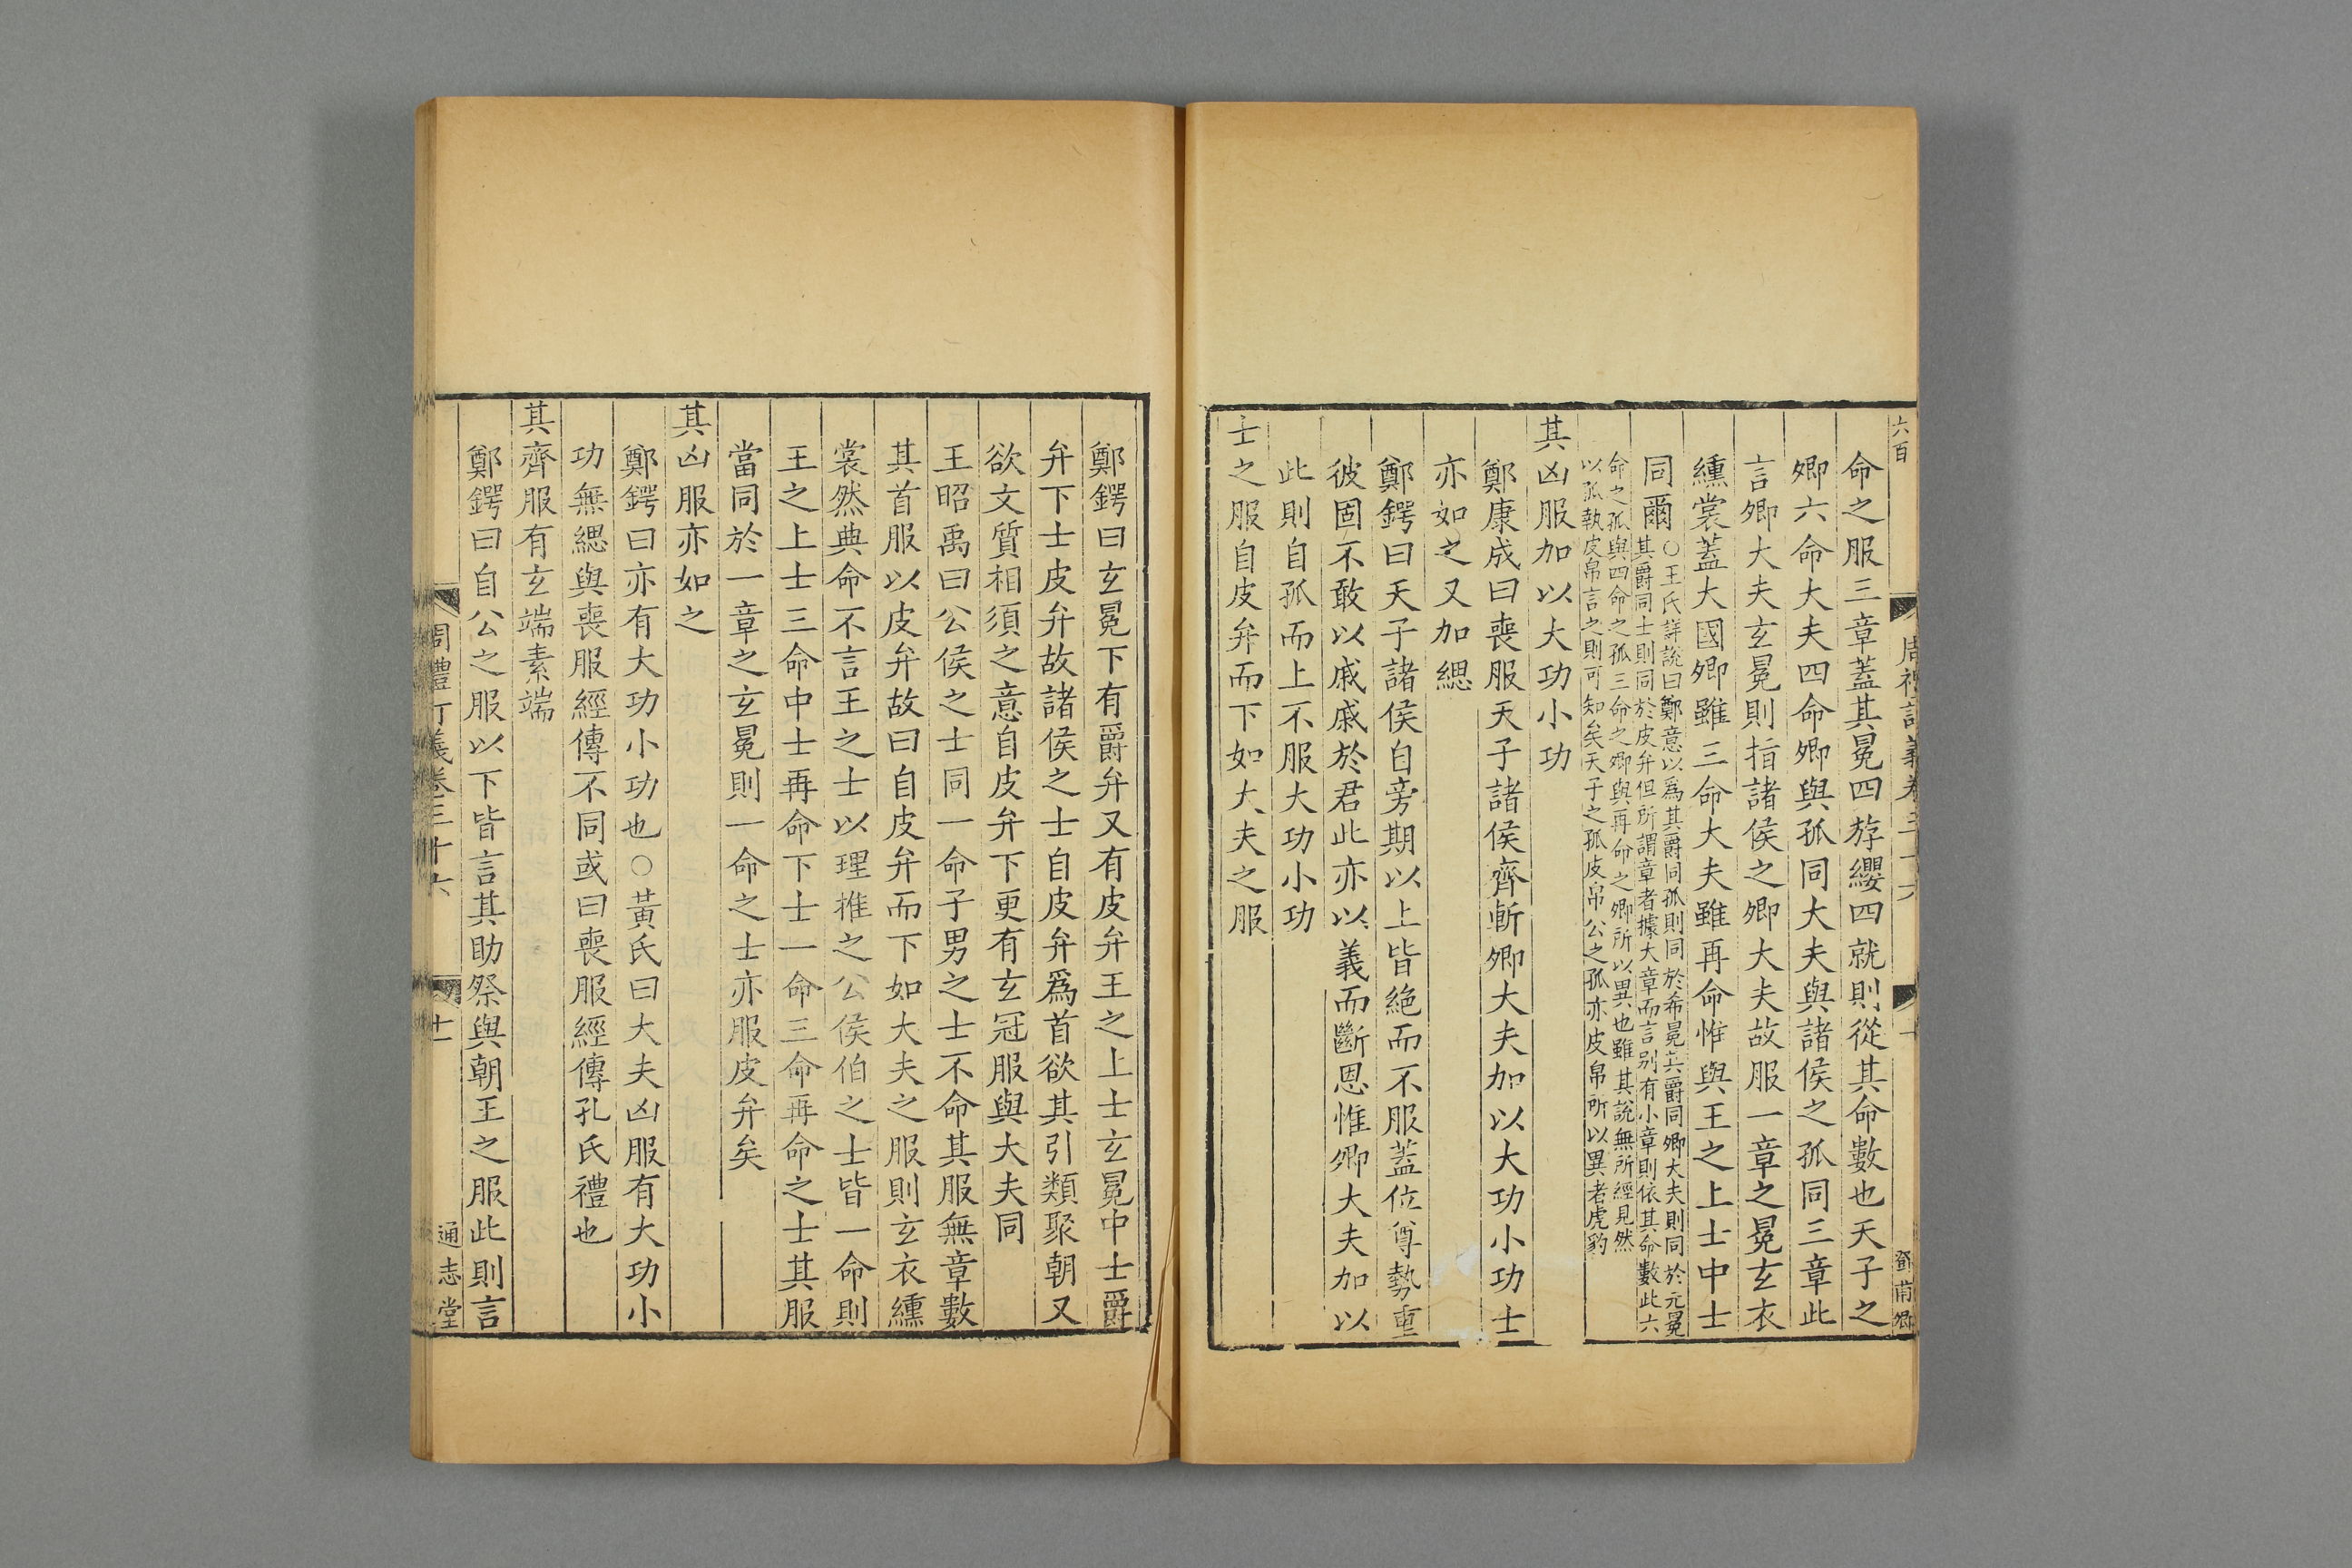 六百
周禮訂義卷三十六
十
鄧甫卿
命之服三章蓋其冕四斿纓四就則從其命數也天子之
卿六命大夫四命卿與孤同大夫與諸侯之孤同三章此
言卿大夫玄冕則指諸侯之卿大夫故服一章之冕玄衣
纁裳蓋大國卿雖三命大夫雖再命惟與王之上士中士
同爾
○王氏詳說曰鄭意以爲其爵同孤則同於希冕其爵同卿大夫則同於元冕
其爵同士則同於皮弁但所謂章者據大章而言别有小章則依其命數此六
命之孤與四命之孤三命之卿與再命之卿所以異也雖其說無所經見然
以孤執皮帛言之則可知矣天子之孤皮帛公之孤亦皮帛所以異者虎豹
其凶服加以大功小功
鄭康成曰喪服天子諸侯齊斬卿大夫加以大功小功士
亦如之又加緦
鄭鍔曰天子諸侯自旁期以上皆絶而不服蓋位尊勢重
彼固不敢以戚戚於君此亦以義而斷恩惟卿大夫加以
此則自孤而上不服大功小功
士之服自皮弁而下如大夫之服
鄭鍔曰玄冕下有爵弁又有皮弁王之上士玄冕中士爵
弁下士皮弁故諸侯之士自皮弁爲首欲其引類聚朝又
欲文質相須之意自皮弁下更有玄冠服與大夫同
王昭禹曰公侯之士同一命子男之士不命其服無章數
其首服以皮弁故曰自皮弁而下如大夫之服則玄衣纁
裳然典命不言王之士以理推之公侯伯之士皆一命則
王之上士三命中士再命下士一命三命再命之士其服
當同於一章之玄冕則一命之士亦服皮弁矣
其凶服亦如之
鄭鍔曰亦有大功小功也○黃氏曰大夫凶服有大功小
功無緦與喪服經傳不同或曰喪服經傳孔氏禮也
其齊服有玄端素端
鄭鍔曰自公之服以下皆言其助祭與朝王之服此則言
周禮訂義卷三十六
十一
通志堂